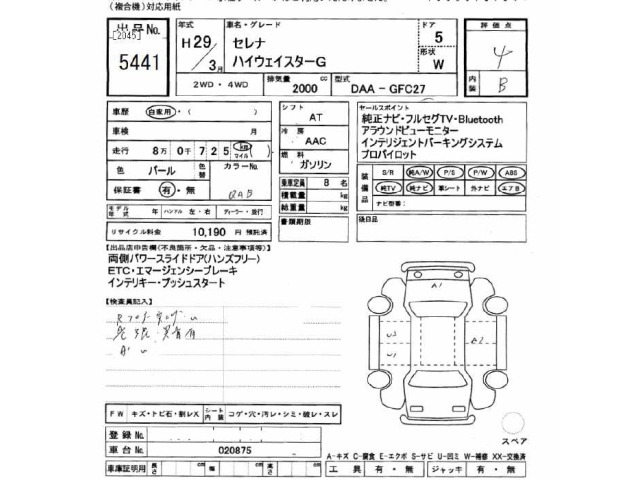 (複合機)対応用紙
出品No.
[2045]
5441
年式
H29/3月
車名・グレード
セレナ
ハイウェイスターG
ドア
5
形状
W
評価点
4
内装
B
2WD・4WD
排気量
2000
cc
型式
DAA - GFC27
車歴
自家用・( )
車検
月
走行
8万0千725
km
マイル
( )
色
パール
色替
カラーNo.
QAB
保証書
有・無
モデル年式
年
ハンドル 左・右
ディーラー・並行
リサイクル料金
10,190 円 預託済
シフト
AT
冷房
AAC
燃料
ガソリン
乗車定員
8 名
積載量
kg
総重量
kg
書類期限
セールスポイント
純正ナビ・フルセグTV・Bluetooth
アラウンドビューモニター
インテリジェントパーキングシステム
プロパイロット
装備品
S/R
純A/W
P/S
P/W
ABS
純TV
純ナビ
革シート
外ナビ
エアB
ナビ型番:
後日品
【出品店申告欄(不良箇所・欠品・注意事項等)】
両側パワースライドドア(ハンズフリー)
ETC・エマージェンシーブレーキ
インテリキー・プッシュスタート
【検査員記入】
A1
U3
U1
A2
FW
キズ・トビ石・割レX
シート内装
コゲ・穴・汚レ・シミ・破レ・スレ
登録No.
車台No.
020875
車庫証明用
長さ
cm
幅
cm
高さ
cm
スペア
A-キズ C-腐食 E-エクボ S-サビ U-凹ミ W-補修 XX-交換済
工具
有・無
ジャッキ
有・無